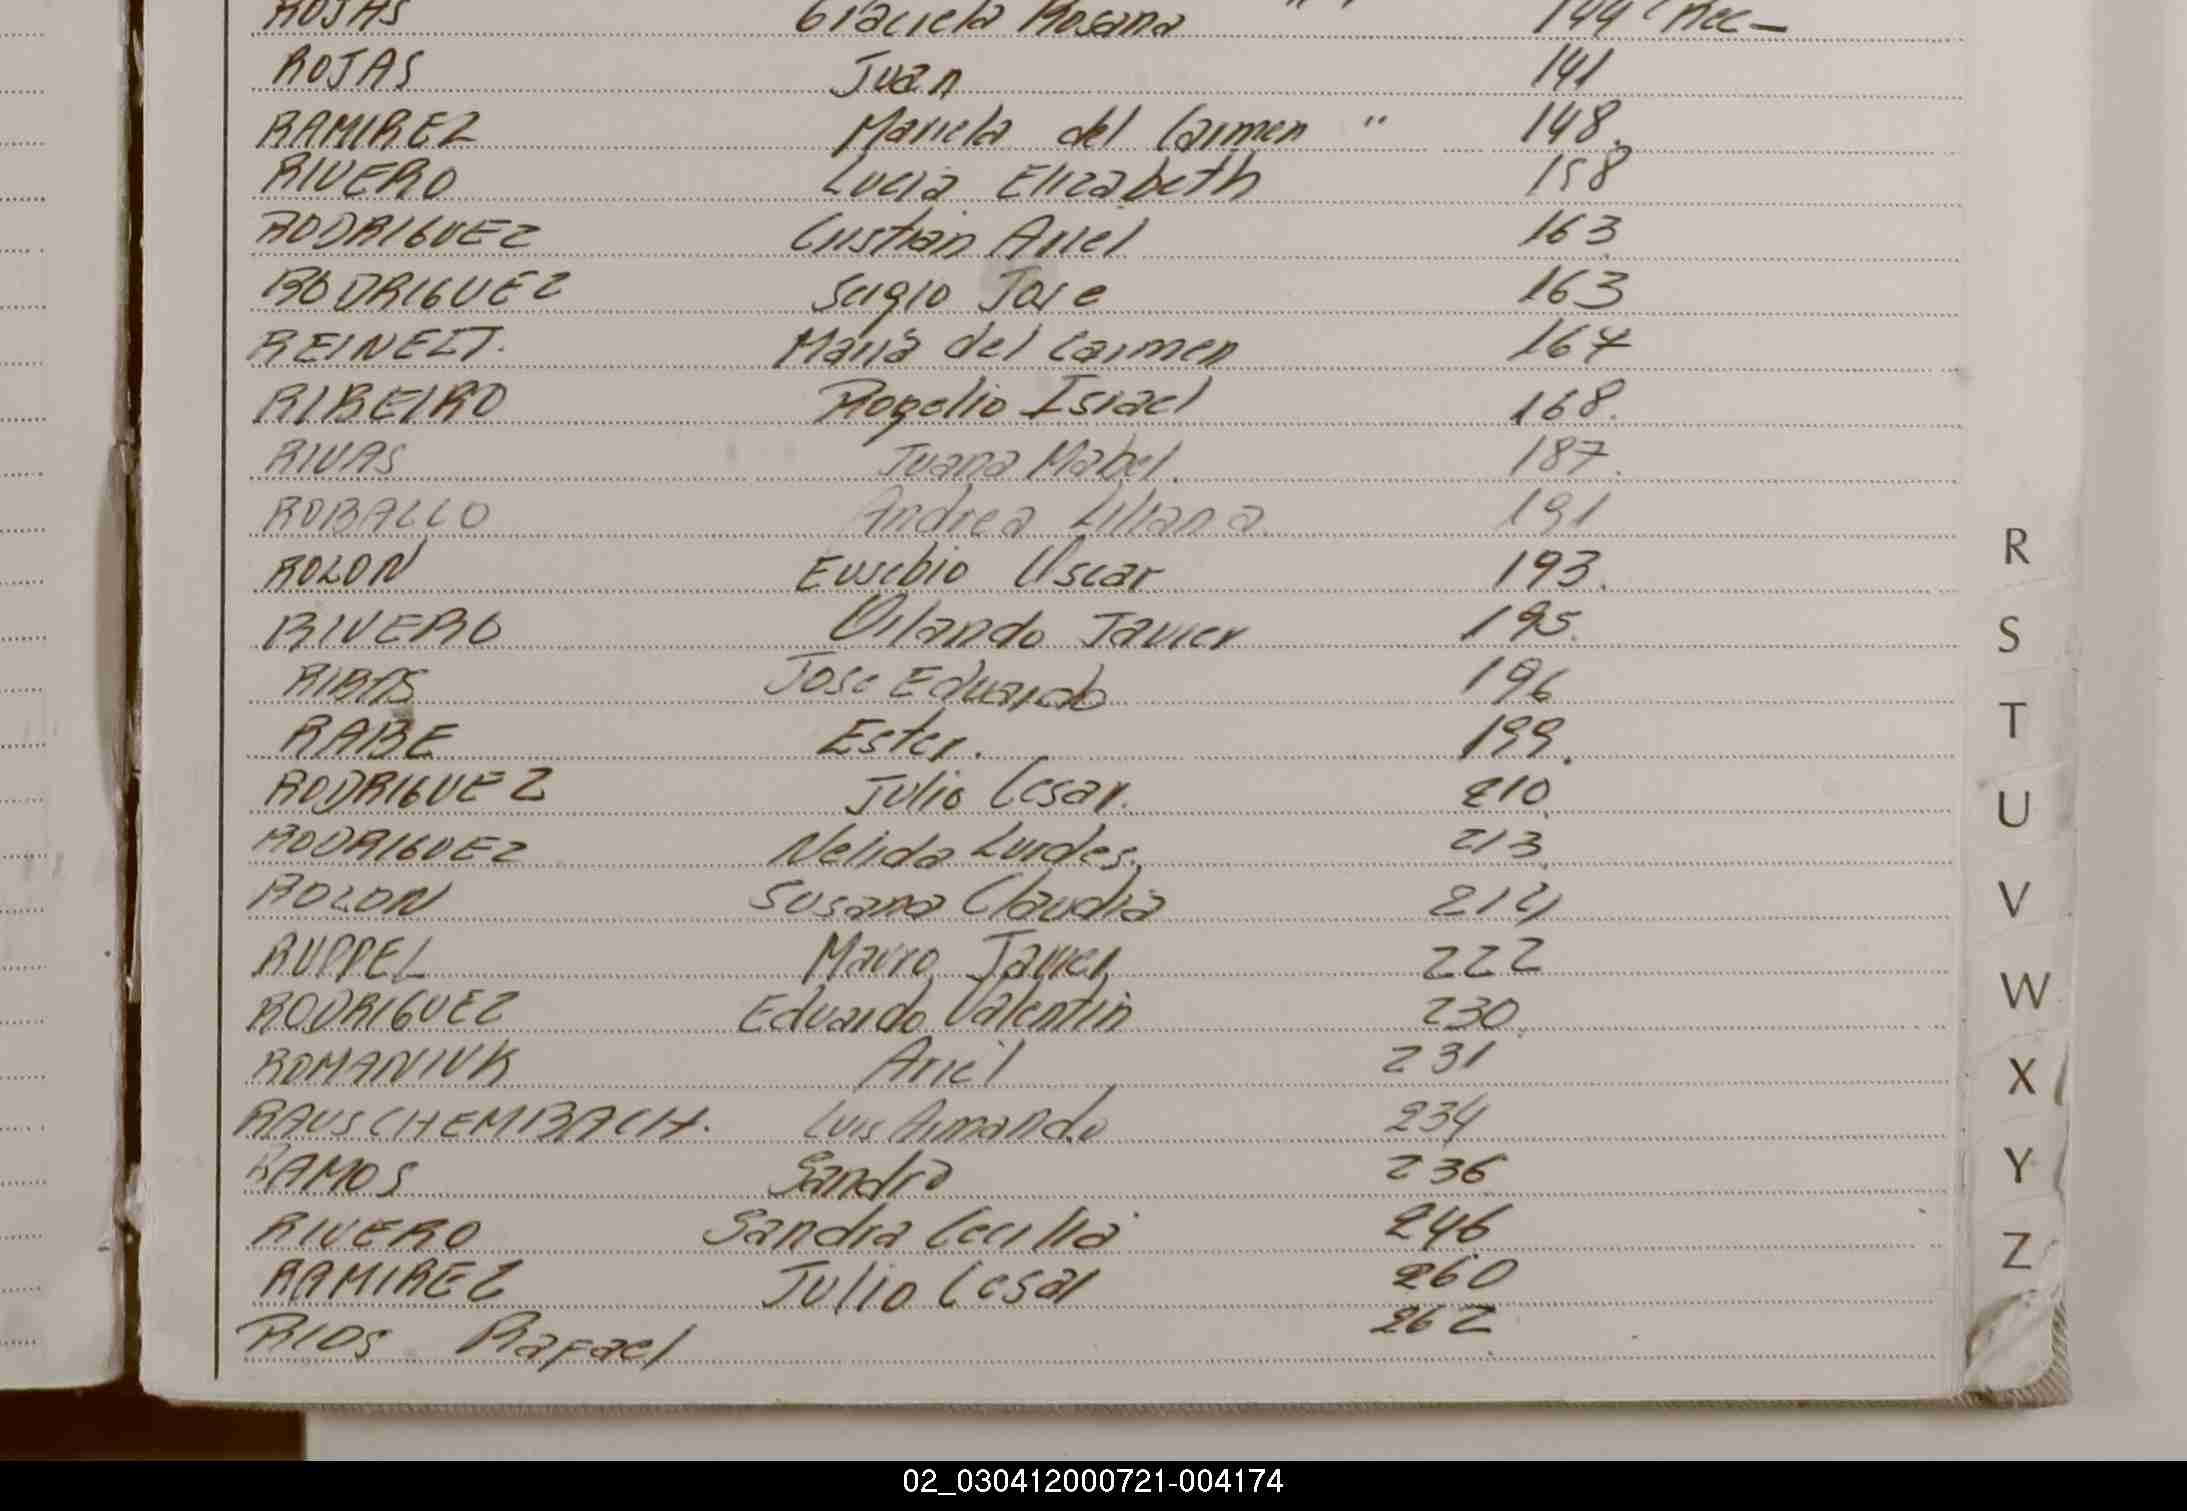 ROJAS Graciela Rosana " " 144 Rec -
ROJAS Juan 141
RAMIREZ Mariela del Carmen " 148.
RIVERO Lucia Elizabeth 158
RODRIGUEZ Cristian Ariel 163
RODRIGUEZ Sergio Jose 163
REINELT. Maria del Carmen 167
RIBEIRO Rogelio Israel 168.
RIVAS Juana Mabel. 187.
ROBALLO Andrea Liliana. 191
ROLON Eusebio Oscar 193.
RIVERO Orlando Javier 195.
RIBAS Jose Eduardo 196
RABE Ester. 199.
RODRIGUEZ Julio Cesar. 210
RODRIGUEZ Nelida Lurdes. 213
ROLON Susana Claudia 214
RUPPEL Mario Javier 222
RODRIGUEZ Eduardo Valentin 230
ROMANIUK Ariel 231
RAUSCHEMBACH. Luis Armando 234
RAMOS Sandro 236
RIVERO Sandra Cecilia 246
RAMIREZ Julio Cesar 260
RIOS Rafael 262
R
S
T
U
V
W
X
Y
Z
02_030412000721-004174